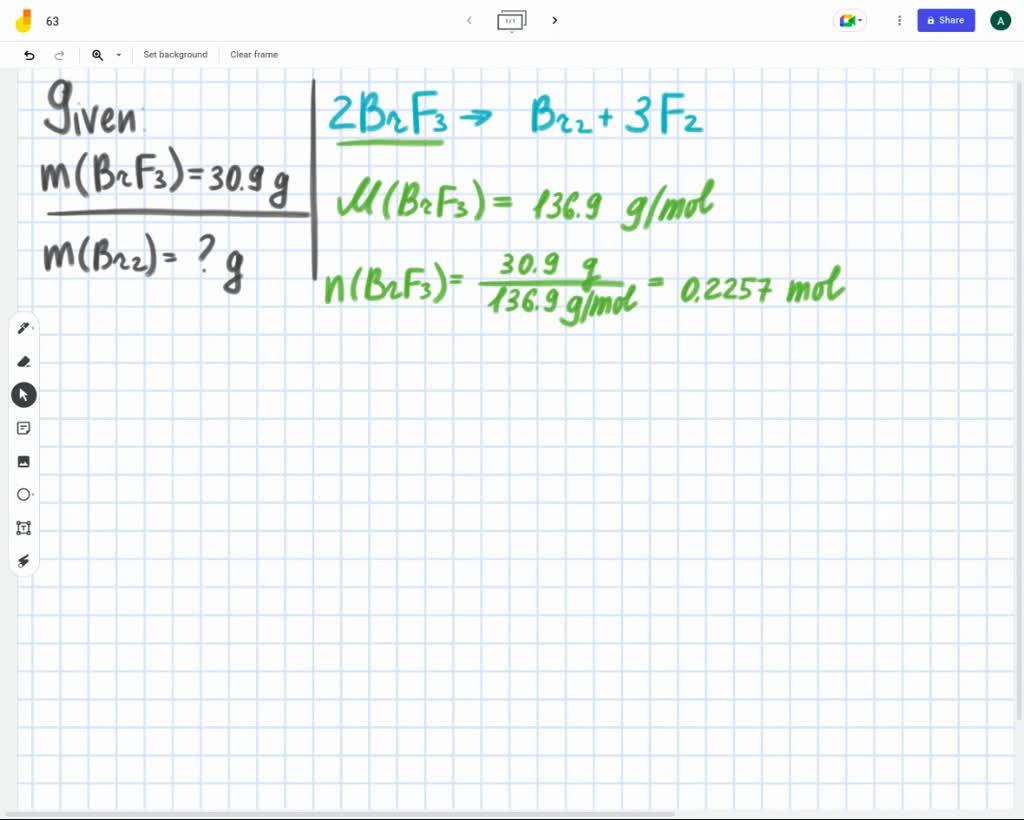 63
1/1
Share
A
Set background
Clear frame
Given:
m(BrF₃)=30.9 g
m(Br₂)= ? g
2BrF₃ → Br₂ + 3F₂
M(BrF₃) = 136.9 g/mol
n(BrF₃)= 30.9 g / 136.9 g/mol = 0.2257 mol